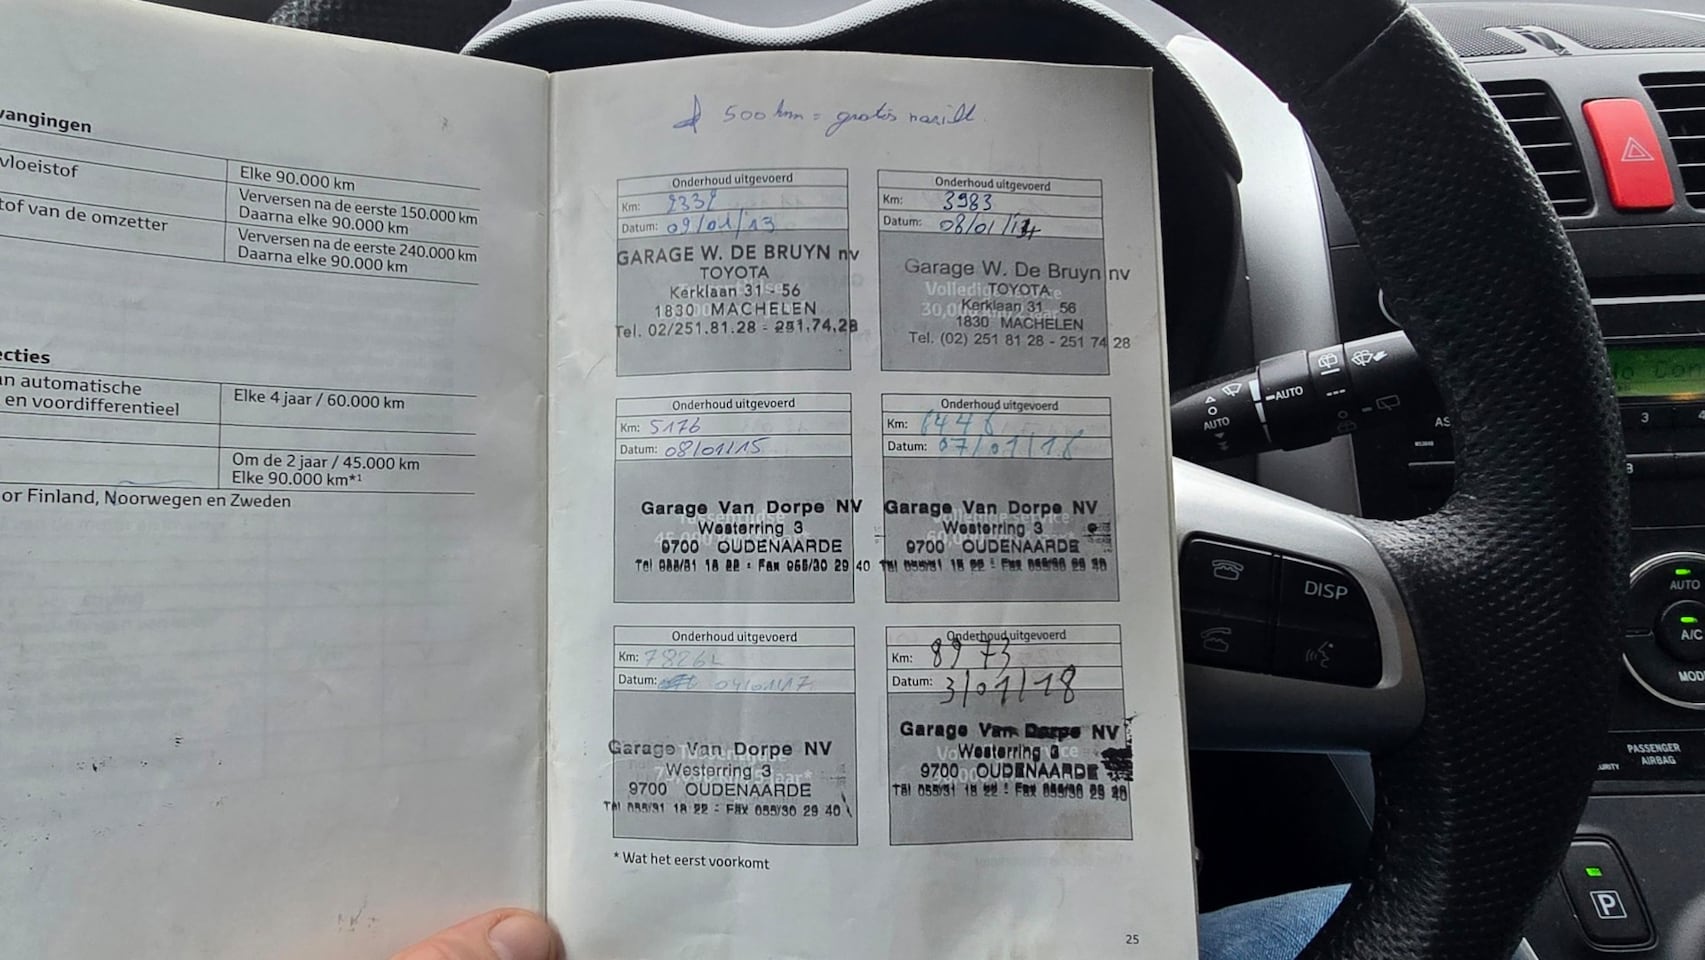 vangingen
vloeistof Elke 90.000 km
tof van de omzetter Verversen na de eerste 150.000 km
Daarna elke 90.000 km
Verversen na de eerste 240.000 km
Daarna elke 90.000 km
ecties
an automatische
en voordifferentieel Elke 4 jaar / 60.000 km
Om de 2 jaar / 45.000 km
Elke 90.000 km*¹
or Finland, Noorwegen en Zweden
500 km = gratis
Onderhoud uitgevoerd
Km:
Datum: 09/01/13
GARAGE W. DE BRUYN nv
TOYOTA
Kerklaan 31 - 56
1830 MACHELEN
Tel. 02/251.81.28 - 251.74.28
Onderhoud uitgevoerd
Km: 3983
Datum: 08/01/14
Garage W. De Bruyn nv
TOYOTA
Kerklaan 31 56
1830 MACHELEN
Tel. (02) 251 81 28 - 251 74 28
Onderhoud uitgevoerd
Km: 5176
Datum: 08/01/15
Garage Van Dorpe NV
Westerring 3
9700 OUDENAARDE
Tel 055/31 18 22 - Fax 055/30 29 40
Onderhoud uitgevoerd
Km: 6446
Datum: 07/01/16
Garage Van Dorpe NV
Westerring 3
9700 OUDENAARDE
Tel 055/31 18 22 - Fax 055/30 29 40
Onderhoud uitgevoerd
Km:
Datum: 04/01/17
Garage Van Dorpe NV
Westerring 3
9700 OUDENAARDE
Tel 055/31 18 22 - Fax 055/30 29 40
Onderhoud uitgevoerd
Km: 8973
Datum: 3/01/18
Garage Van Dorpe NV
Westerring 3
9700 OUDENAARDE
Tel 055/31 18 22 - Fax 055/30 29 40
* Wat het eerst voorkomt
25
AUTO
AUTO
DISP
3
AS
AUTO
A/C
MOD
PASSENGER
AIRBAG
P